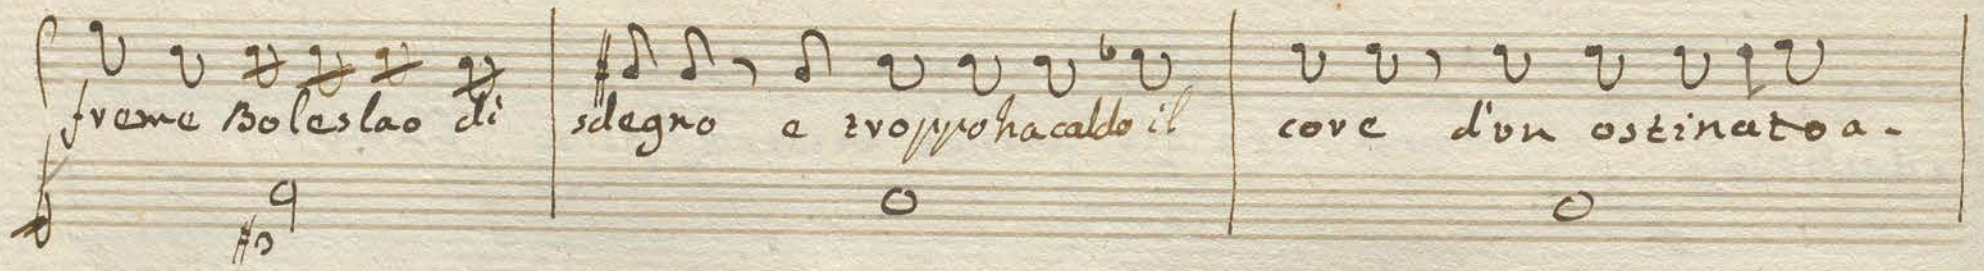 freme Boleslao di sdegno e troppo ha caldo il core d'un ostinato a-
#3